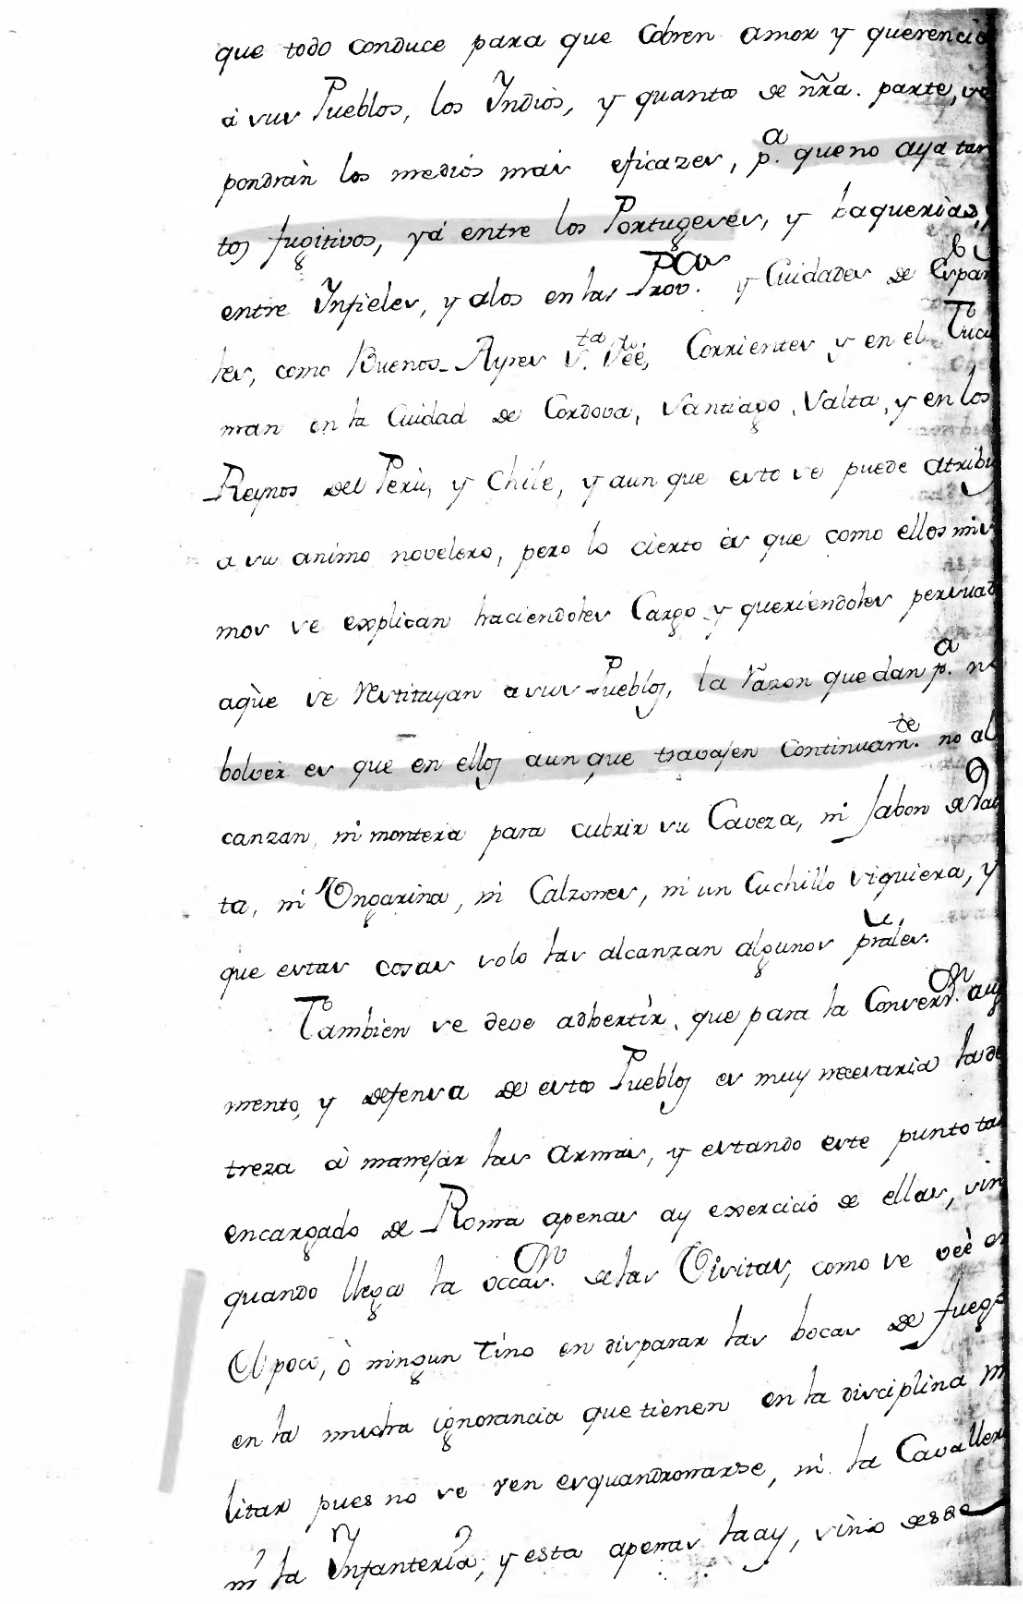 que todo conduce para que Cobren amor y querencia
à sus Pueblos, los Yndios, y quanto de ñra. parte, se
pondràn los medios mas eficazes, p.ª que no aya tan
tos fugitivos, yá entre los Portugeses, y baquerias,
entre Ynfieles, y alos en las Prov.cas y Cuidades de Españo
les, como Buenos-Ayres S.ta Feé, Corrientes y en el Tucu
man en la Cuidad de Cordova, Santiago, Salta, y en los
Reynos del Perù, y Chile, y aun que esto se puede atribu
a su animo novelero, pero lo cierto ès que como ellos mis
mos se explican haciendoles Cargo y queriendoles persuad
aqùe se restituyan a sus Pueblos, la razon que dan p.ª no
bolver es que en ellos aun que travajen Continuam.te no al
canzan, ni montera para cubrir su Caveza, ni Jabon de Va
ta, ni Ongarina, ni Calzones, ni un Cuchillo siquiera, y
que estas cosas solo las alcanzan algunos prãles.
Tambien se deve adbertìr, que para la Convers.on aug
mento, y defensa de estos Pueblos es muy necesaria la des
treza à manejar las armas, y estando este punto tan
encargado de Roma apenas ay exercicio de ellas, sin
quando llega la occas.on de las Visitas, como se veè en
el poco, ò ningun tino en disparar las bocas de fuego
en la mucha ignorancia que tienen en la disciplina m
litar pues no se ven esquandronarse, ni la Cavalleri
ni la Ynfanteria, y esta apenas la ay, sino desde